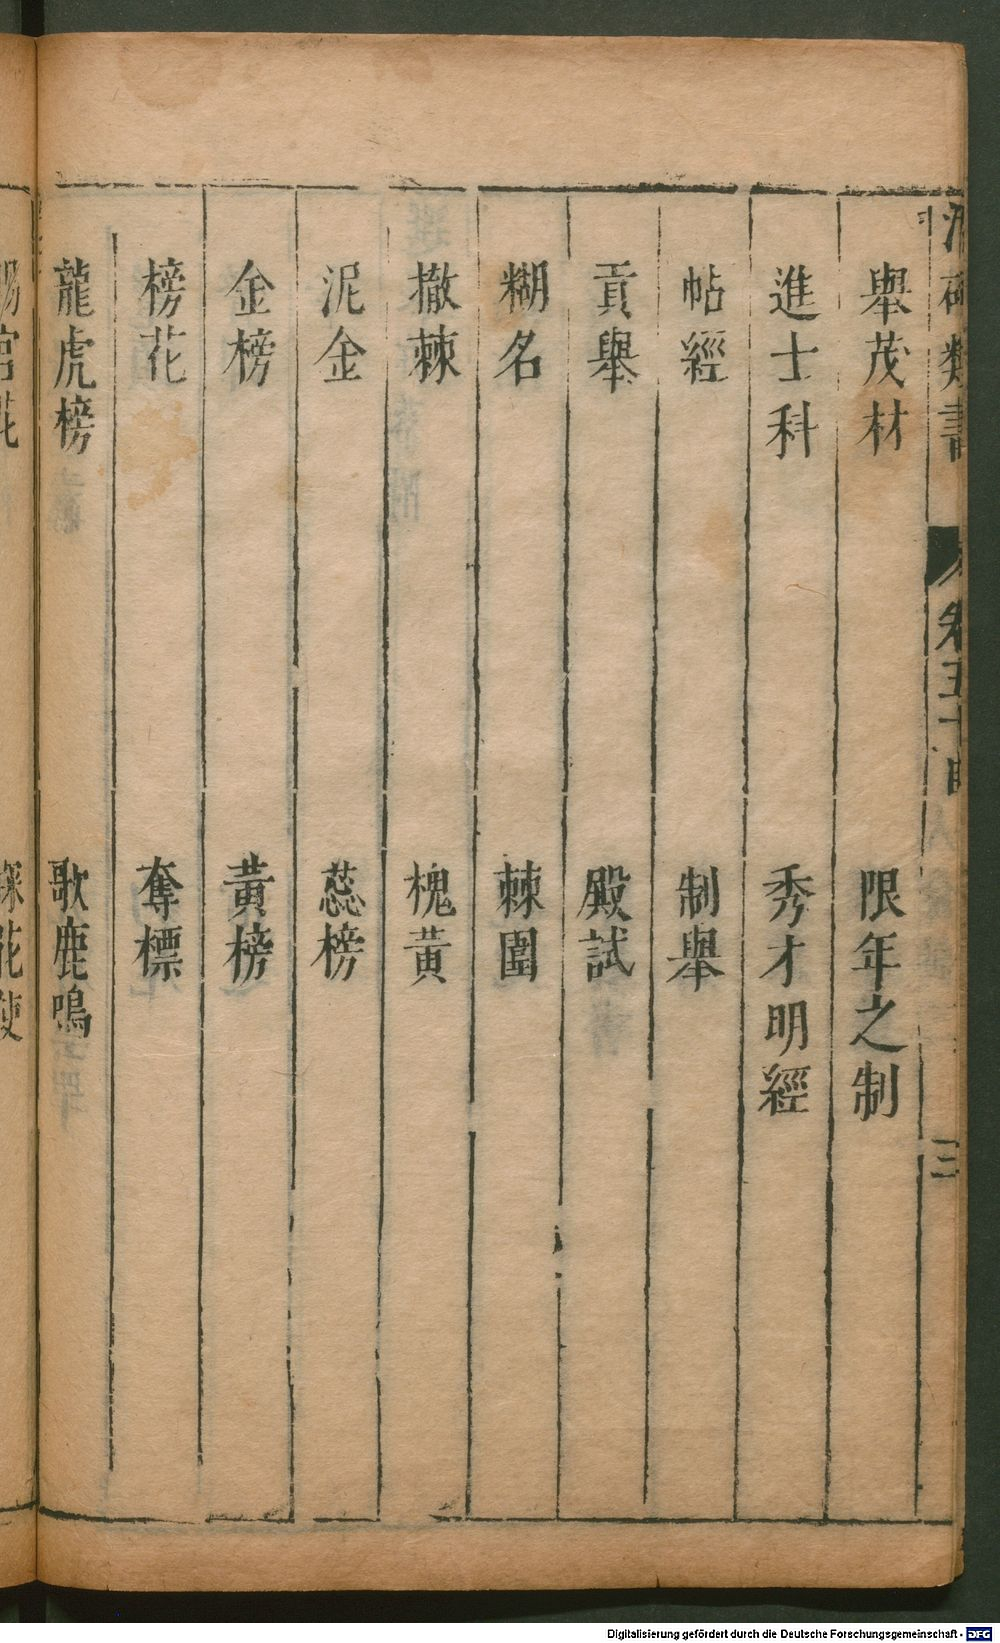 類書
卷五十目
三
舉茂材
限年之制
進士科
秀才明經
帖經
制舉
貢舉
殿試
糊名
棘圍
撤棘
槐黃
泥金
蕊榜
金榜
黃榜
榜花
奪標
龍虎榜
歌鹿鳴
宮花
探花使
Digitalisierung gefördert durch die Deutsche Forschungsgemeinschaft - DFG